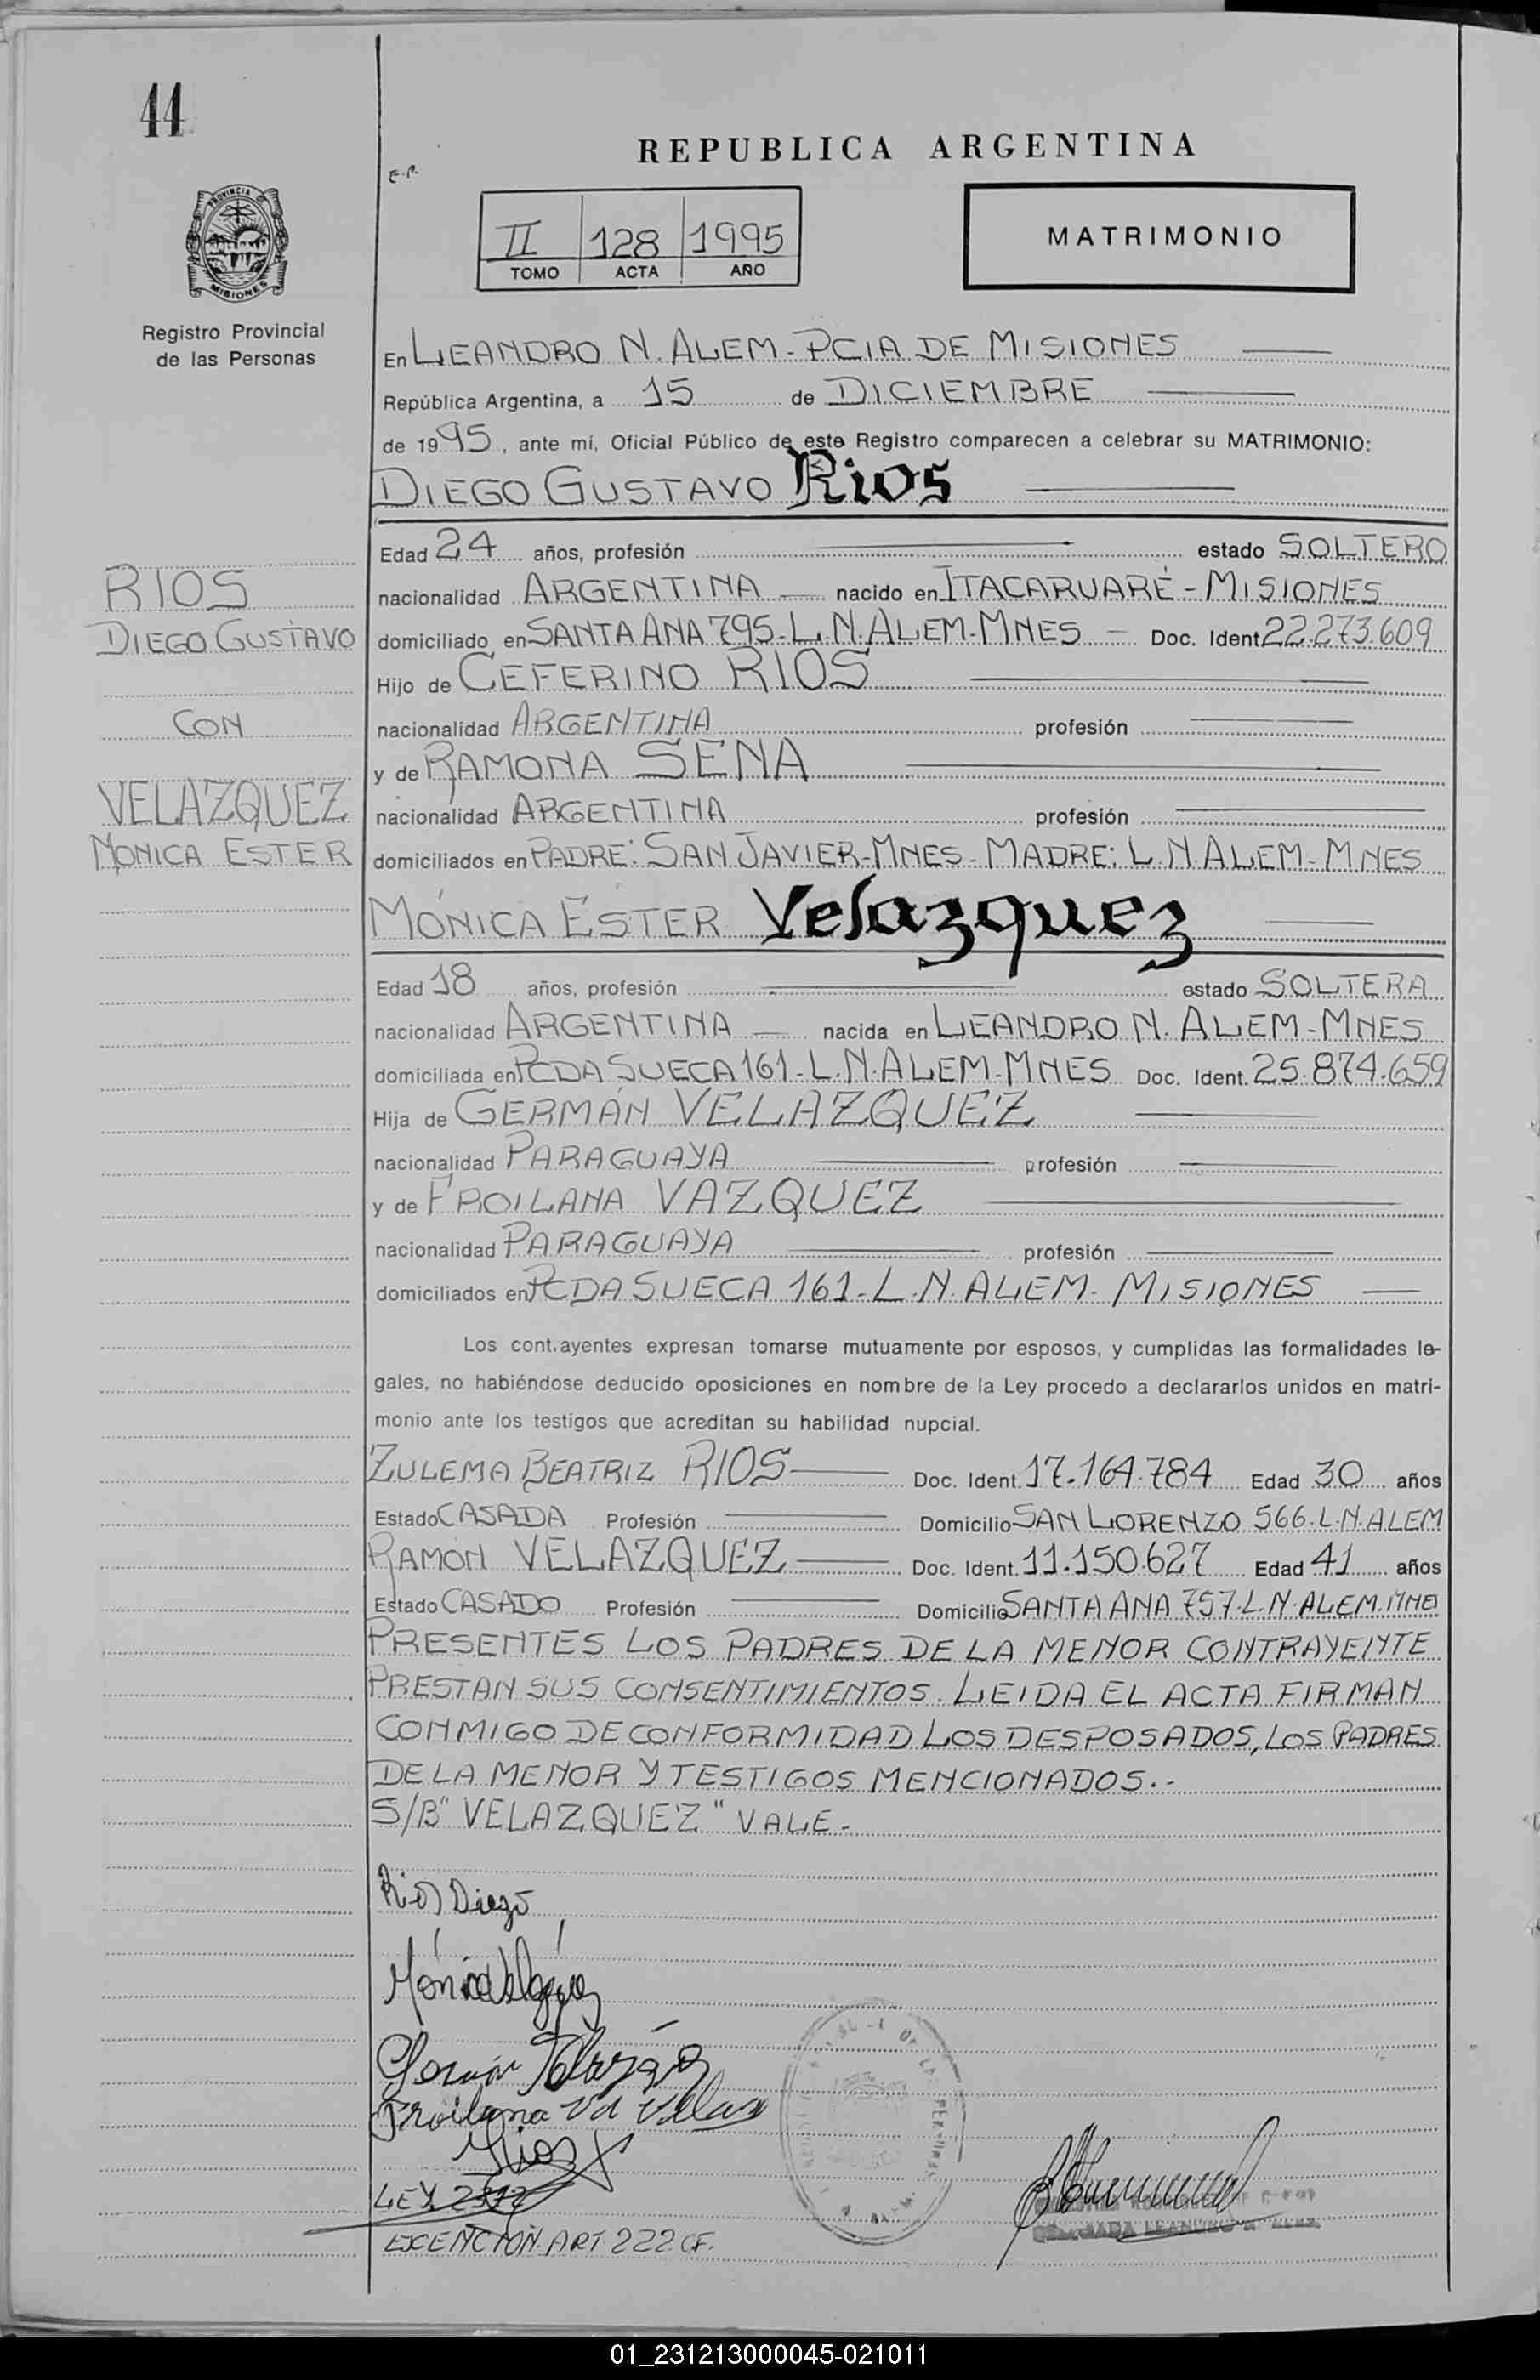 44
REPUBLICA ARGENTINA
E.P.
PROVINCIA
MISIONES
II 128 1995
TOMO ACTA AÑO
MATRIMONIO
Registro Provincial
de las Personas
En LEANDRO N. ALEM - PCIA DE MISIONES
República Argentina, a 15 de DICIEMBRE
de 1995, ante mí, Oficial Público de este Registro comparecen a celebrar su MATRIMONIO:
DIEGO GUSTAVO Rios
Edad 24 años, profesión estado SOLTERO
nacionalidad ARGENTINA nacido en ITACARUARÉ - MISIONES
domiciliado en SANTA ANA 795 - L.N. ALEM - MNES Doc. Ident. 22.273.609
Hijo de CEFERINO RIOS
nacionalidad ARGENTINA profesión
y de RAMONA SENA
nacionalidad ARGENTINA profesión
domiciliados en PADRE: SAN JAVIER - MNES - MADRE: L.N. ALEM - MNES
RIOS
DIEGO GUSTAVO
CON
VELAZQUEZ
MONICA ESTER
MÓNICA ESTER Velazquez
Edad 18 años, profesión estado SOLTERA
nacionalidad ARGENTINA nacida en LEANDRO N. ALEM - MNES
domiciliada en PCDA SUECA 161 - L.N. ALEM - MNES Doc. Ident. 25.874.659
Hija de GERMÁN VELAZQUEZ
nacionalidad PARAGUAYA profesión
y de FROILANA VAZQUEZ
nacionalidad PARAGUAYA profesión
domiciliados en PCDA SUECA 161 - L.N. ALEM - MISIONES
Los cont.ayentes expresan tomarse mutuamente por esposos, y cumplidas las formalidades le-
gales, no habiéndose deducido oposiciones en nombre de la Ley procedo a declararlos unidos en matri-
monio ante los testigos que acreditan su habilidad nupcial.
ZULEMA BEATRIZ RIOS Doc. Ident. 17.164.784 Edad 30 años
Estado CASADA Profesión Domicilio SAN LORENZO 566 - L.N. ALEM
RAMÓN VELAZQUEZ Doc. Ident. 11.150.627 Edad 41 años
Estado CASADO Profesión Domicilio SANTA ANA 757 - L.N. ALEM. MNES
PRESENTES LOS PADRES DE LA MENOR CONTRAYENTE
PRESTAN SUS CONSENTIMIENTOS. LEIDA EL ACTA FIRMAN
CONMIGO DE CONFORMIDAD LOS DESPOSADOS, LOS PADRES
DE LA MENOR Y TESTIGOS MENCIONADOS.-
S/B "VELAZQUEZ" VALE -
Rios Diego
Mónica
Germán
Froilana Vd
Rios
LEY
EXENCIÓN ART 222 CF.
01_231213000045-021011